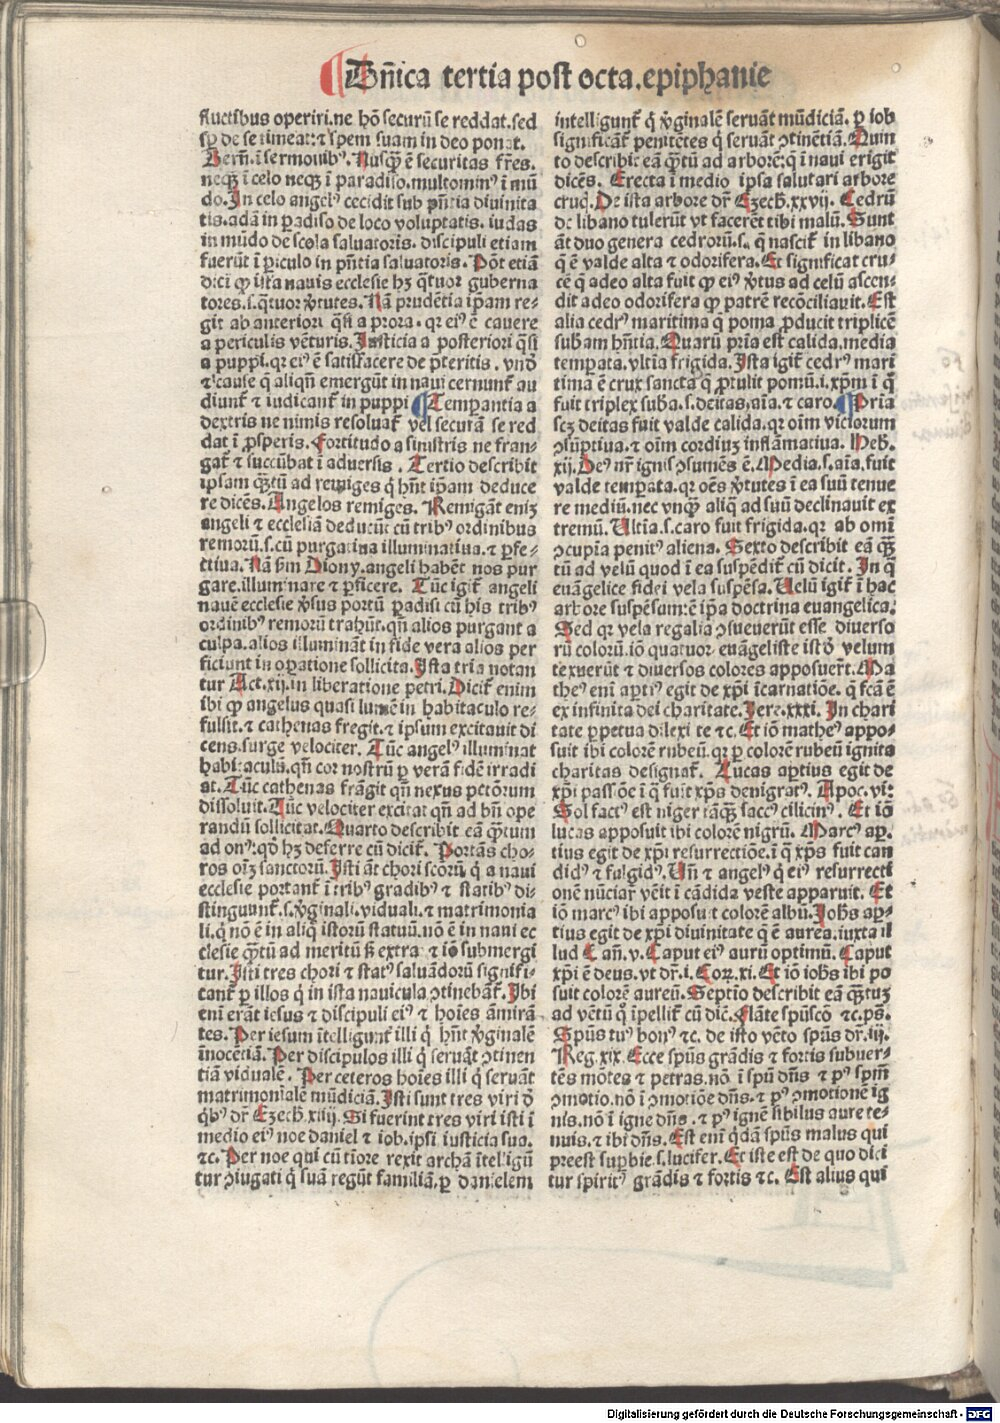 ¶ Dn̄ica tertia post octa. epiphanie
fluctibus operiri. ne hō securū se reddat. sed
sp̄ de se timeat: ⁊ spem suam in deo ponat.
Bern̄. ī sermonibꝰ. Nusq̄ꝫ ē securitas fr̄es.
neqꝫ ī celo neqꝫ ī paradiso. multominꝰ ī mū
do. In celo angelꝰ cecidit sub p̄ntia diuinita
tis. adā in ꝑadiso de loco voluptatis. iudas
in mūdo de scola saluatoris. discipuli etiam
fuerūt ī ꝑiculo in p̄ntia saluatoris. Pōt etiā
dici ꝙ ista nauis ecclesie hꝫ q̄tuor guberna
tores. s. q̄tuor ꝟtutes. Nā prudētia ip̄am re-
git ab anteriori q̄si a prora. qꝛ eiꝰ ē cauere
a periculis vēturis. Iusticia a posteriori q̄si
a puppi. qꝛ eiꝰ ē satisfacere de p̄teritis. vnō
⁊ cause q̄ aliqn̄ emergūt in naui cernunt̄ au
diunt̄ ⁊ iudicant̄ in puppi ¶ Temperantia a
dextris ne nimis resoluat̄ vel securā se red
dat ī ꝓsperis. Fortitudo a sinistris ne fran-
gat̄ ⁊ succūbat ī aduersis. Tertio describit
ipsam q̄ꝫtū ad remiges q̄ hn̄t ip̄am deduce
re dicēs. Angelos remiges. Remigāt eniꝫ
angeli ⁊ ecclesiā deducūt cū tribꝰ ordinibus
remorū. s. cū purgatiua illuminatiua. ⁊ ꝑfe-
ctiua. Nā ẜm Diony. angeli habēt nos pur
gare. illuminare ⁊ ꝑficere. Tūc igit̄ angeli
nauē ecclesie ꝟsus portū ꝑadisi cū his tribꝰ
ordinibꝰ remorū trahūt. qn̄ alios purgant a
culpa. alios illumināt in fide vera alios per
ficiunt in oꝑatione sollicita. Ista tria notan
tur Act. xij. in liberatione petri. Dicit̄ enim
ibi ꝙ angelus quasi lumē in habitaculo re-
fulsit. ⁊ cathenas fregit. ⁊ ipsum excitauit di
cens. surge velociter. Tūc angelꝰ illuminat
habitaculū. qn̄ cor nostrū ꝑ verā fidē irradi
at. Tūc cathenas frāgit qn̄ nexus pctōrum
dissoluit. Tūc velociter excitat qn̄ ad bn̄ ope
randū sollicitat. Quarto describit eā q̄ꝫtum
ad onꝰ: qd̄ hꝫ deferre cū dicit̄. Portās cho-
ros oīꝫ sanctorū. Isti āt chori scōꝝ q̄ a naui
ecclesie portant̄ ī tribꝰ gradibꝰ ⁊ statibꝰ di-
stinguunt̄. s. ꝟginali. viduali. ⁊ matrimonia
li. q̄ nō ē in aliq̄ istorū statuū. nō ē in naui ec
clesie q̄tū ad meritū ß extra ⁊ iō submergi
tur. Isti tres chori ⁊ statꝰ saluādorū signifi-
cant̄ ꝑ illos q̄ in ista nauicula ↄtinebāt̄. Ibi
enī erāt iesus ⁊ discipuli eiꝰ ⁊ hoīes āmirā
tes. Per iesum ītelligunt̄ illi q̄ hn̄t ꝟginalē
īnocētiā. Per discipulos illi q̄ seruāt ↄtinen
tiā vidualē. Per ceteros hoīes illi q̄ seruāt
matrimonialē mūdiciā. Isti sunt tres viri d̄
q̄bꝰ dr̄ Ezech. xiiij. Si fuerint tres viri isti ī
medio eiꝰ noe daniel ⁊ iob. ipsi iusticia sua.
⁊c. Per noe qui cū tīore rexit archā ītelligū
tur ↄiugati q̄ suā regūt familiā. ꝑ danielem
intelligunt̄ q̄ ꝟginalē seruāt mūdiciā. ꝑ iob
significāt̄ penitētes q̄ seruāt ↄtinētiā. Quin
to describit eā q̄tū ad arborē: q̄ ī naui erigit̄
dicēs. Erecta ī medio ipsa salutari arbore
cruc̄. De ista arbore dr̄ Ezech. xxvij. Cedrū
de libano tulerūt vt facerēt tibi malū. Sunt
āt duo genera cedrorū. s. q̄ nascit̄ in libano
q̄ ē valde alta ⁊ odorifera. Et significat cru-
cē q̄ adeo alta fuit ꝙ eiꝰ ꝟtus ad celū ascen-
dit adeo odorifera ꝙ patrē recōciliauit. Est
alia cedrꝰ maritima q̄ poma ꝓducit triplicē
subam hn̄tia. Quaꝝ pria est calida. media
temperata. vltīa frigida. Ista igit̄ cedrꝰ mari
tima ē crux sancta q̄ ꝓtulit pomū. i. xpm̄ ī q̄
fuit triplex suba. s. deitas, aīa. ⁊ caro. ¶ Pria
scꝫ deitas fuit valde calida. qꝛ oīm viciorum
ↄsūptiua. ⁊ oīm cordiuꝫ inflāmatiua. Heb.
xij. Deꝰ nr̄ ignis ↄsumēs ē. Media. s. aīa. fuit
valde temperata. qꝛ oēs ꝟtutes ī ea suū tenue
re mediū. nec vnq̄ꝫ aliq̄ ad suū declinauit ex
tremū. Ultīa. s. caro fuit frigida. qꝛ ab omī
ↄcupīa penitꝰ aliena. Sexto describit eā q̄ꝫ
tū ad velū quod ī ea suspēdit̄ cū dicit. In q̄
euāgelice fidei vela suspēsa. Uelū igit̄ ī hac
arbore suspēsum: ē ip̄a doctrina euangelica.
Sed qꝛ vela regalia ↄsueuerūt esse diuerso
rū colorū. iō quatuor euāgeliste istd̄ velum
texuerūt ⁊ diuersos colores apposuert̄. Ma
theꝰ enī aꝑtiꝰ egit de xp̄i īcarnatiōe. q̄ fcā ē
ex infinita dei charitate. Jere. xxxi. In chari
tate ꝑpetua dilexi te ⁊c. Et iō matheꝰ appo-
suit ibi colorē rubeū. qꝛ ꝑ colorē rubeū ignita
charitas designat̄. Lucas aꝑtius egit de
xp̄i passiōe ī q̄ fuit xp̄s denigratꝰ. Apoc. vi:
Sol factꝰ est niger tāq̄ꝫ saccꝰ cilicinꝰ. Et iō
lucas apposuit ibi colorē nigrū. Marcꝰ aꝑ-
tius egit de xp̄i resurrectiōe. ī q̄ xp̄s fuit can
didꝰ ⁊ fulgidꝰ. Un̄ ⁊ angelꝰ q̄ eiꝰ resurrecti
onē nūciaꝝ vēit ī cādida veste apparuit. Et
iō marcꝰ ibi apposuit colorē albū. Johs̄ aꝑ-
tius egit de xp̄i diuinitate q̄ ē aurea. iuxta il
lud Can̄. v. Caput eiꝰ aurū optimū. Caput
xp̄i ē deus. vt dr̄. i. Coꝝ. xi. Et iō iohs̄ ibi po
suit colorē aureū. Septīo describit eā q̄ꝫtuꝫ
ad vētū q̄ īpellit̄ cū dic̄. Flāte spūscō ⁊c. ps̄.
Spūs tuꝰ bonꝰ ⁊c. de isto vēto spūs dr̄. iij.
Reg. xix. Ecce spūs grādis ⁊ fortis subuer-
tēs mōtes ⁊ petras. nō ī spū dn̄s ⁊ pꝰ spm̄
ↄmotio. nō ī ↄmotiōe dn̄s. ⁊ pꝰ ↄmotionē ig
nis. nō ī igne dn̄s. ⁊ pꝰ ignē sibilus aure te-
nuis. ⁊ ibi dn̄s. Est enī q̄dā spūs malus qui
preest suꝑbie. s. lucifer. Et iste est de quo dici
tur spiritꝰ grādis ⁊ fortis ⁊c. Est alius qui
Digitalisierung gefördert durch die Deutsche Forschungsgemeinschaft - DFG